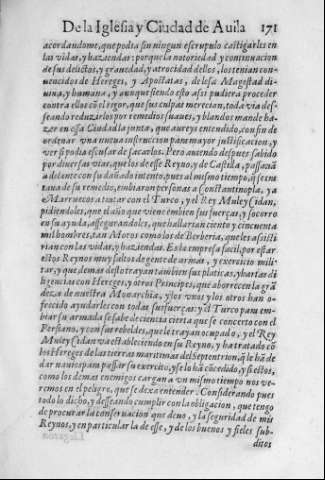 De la Iglesia y Ciudad de Auila 171
acordandome, que podia sin ningun escrupulo castigarles en
las vidas, y haziendas: porque la notoriedad y continuacion
de sus delictos, y grauedad, y atrocidad dellos, los tenian con-
uencidos de Hereges, y Apostatas, de lesa Magestad di-
uina, y humana, y aunque siendo esto assi pudiera proceder
contra ellos cõ el rigor, que sus culpas merecian, todavia des-
seando reduzirlos por remedios suaues, y blandos mande ha-
zer en essa Ciudad la junta, que aureys entendido, con fin de
ordenar vna nueua instruccion para mayor justificacion, y
ver si podia escusar de sacarlos. Pero auiendo despues sabido
por diuersas vias, que los de esse Reyno, y de Castilla, passauã
adelante con su dañado intento, pues al mismo tiempo, q̃ se en
taua de su remedio, embiaron personas a Constantinopla, ya
a Marruecos a tratar con el Turco, y el Rey Muley Cidan,
pidiendoles, que el año que viene embien sus fuerças, y socorro
en su ayuda, assegurandoles, que hallarian ciento y cincuenta
mil hombres, tan Moros como los de Berberia, que les assisti
rian con las vidas, y haziendas. Esta empresa facil, por estar
estos Reynos muy faltos de gente de armas, y exercicio mili-
tar, y que demas desto trayan tambien sus platicas, y hartas di
ligencias con Hereges, y otros Principes, que aborrecen la grã
deza de nuestra Monarchia, y los vnos y los otros han o-
frecido ayudarles con todas sus fuerças: y el Turco para em-
biar su armada se sabe de ciencia cierta que se concerto con el
Persiano, y con sus rebeldes, que le trayan ocupado, y el Rey
Muley Sidan va estableciendo en su Reyno, y ha tratado cõ
los Hereges de las tierras maritimas del Septentrion, q̃ le hã de
dar nauios para passar su exercito, y se lo hã cõcedido, y si estos,
como los demas enemigos cargan a vn mismo tiempo nos ve-
remos en el peligro, que se dexa entender. Considerando pues
todo lo dicho, y desseando cumplir con la obligacion, que tengo
de procurar la conseruacion que deuo, y la seguridad de mis
Reynos, y en particular la de esse, y de los buenos y fieles sub-
ditos